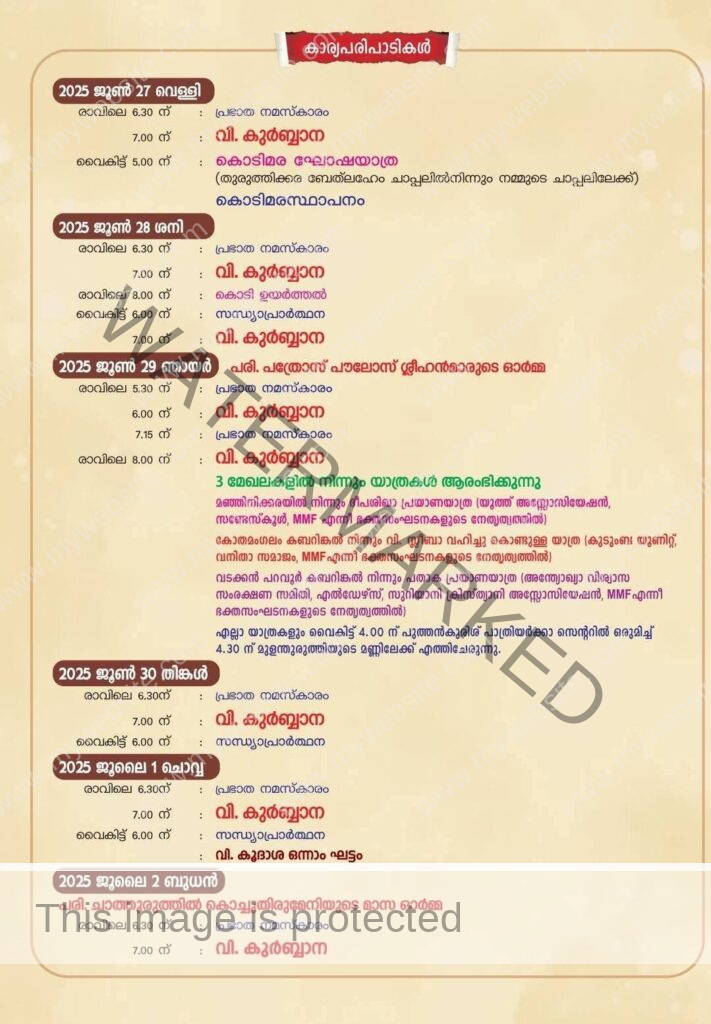 കാര്യപരിപാടികൾ
2025 ജൂൺ 27 വെള്ളി
രാവിലെ 6.30 ന് : പ്രഭാത നമസ്കാരം
7.00 ന് : വി. കുർബ്ബാന
വൈകിട്ട് 5.00 ന് : കൊടിമര ഘോഷയാത്ര
(തുരുത്തിക്കര ബേത്‌ലഹേം ചാപ്പലിൽനിന്നും നമ്മുടെ ചാപ്പലിലേക്ക്)
കൊടിമരസ്ഥാപനം
2025 ജൂൺ 28 ശനി
രാവിലെ 6.30 ന് : പ്രഭാത നമസ്കാരം
7.00 ന് : വി. കുർബ്ബാന
രാവിലെ 8.00 ന് : കൊടി ഉയർത്തൽ
വൈകിട്ട് 6.00 ന് : സന്ധ്യാപ്രാർത്ഥന
7.00 ന് : വി. കുർബ്ബാന
2025 ജൂൺ 29 ഞായർ പരി. പത്രോസ് പൗലോസ് ശ്ലീഹൻമാരുടെ ഓർമ്മ
രാവിലെ 5.30 ന് : പ്രഭാത നമസ്കാരം
6.00 ന് : വി. കുർബ്ബാന
7.15 ന് : പ്രഭാത നമസ്കാരം
രാവിലെ 8.00 ന് : വി. കുർബ്ബാന
3 മേഖലകളിൽ നിന്നും യാത്രകൾ ആരംഭിക്കുന്നു
മഞ്ഞിനിക്കരയിൽ നിന്നും ദീപശിഖാ പ്രയാണയാത്ര (യൂത്ത് അസ്സോസിയേഷൻ,
സണ്ടേസ്കൂൾ, MMF എന്നീ ഭക്തസംഘടനകളുടെ നേതൃത്വത്തിൽ)
കോതമംഗലം കബറിങ്കൽ നിന്നും വി. സ്ലീബാ വഹിച്ചു കൊണ്ടുള്ള യാത്ര (കുടുംബ യൂണിറ്റ്,
വനിതാ സമാജം, MMF എന്നീ ഭക്തസംഘടനകളുടെ നേതൃത്വത്തിൽ)
വടക്കൻ പറവൂർ കബറിങ്കൽ നിന്നും പതാക പ്രയാണയാത്ര (അന്ത്യോഖ്യാ വിശ്വാസ
സംരക്ഷണ സമിതി, എൽഡേഴ്സ്, സുറിയാനി ക്രിസ്ത്യാനി അസ്സോസിയേഷൻ, MMF എന്നീ
ഭക്തസംഘടനകളുടെ നേതൃത്വത്തിൽ)
എല്ലാ യാത്രകളും വൈകിട്ട് 4.00 ന് പുത്തൻകുരിശ് പാത്രിയർക്കാ സെന്ററിൽ ഒരുമിച്ച്
4.30 ന് മുളന്തുരുത്തിയുടെ മണ്ണിലേക്ക് എത്തിചേരുന്നു.
2025 ജൂൺ 30 തിങ്കൾ
രാവിലെ 6.30ന് : പ്രഭാത നമസ്കാരം
7.00 ന് : വി. കുർബ്ബാന
വൈകിട്ട് 6.00 ന് : സന്ധ്യാപ്രാർത്ഥന
2025 ജൂലൈ 1 ചൊവ്വ
രാവിലെ 6.30ന് : പ്രഭാത നമസ്കാരം
7.00 ന് : വി. കുർബ്ബാന
വൈകിട്ട് 6.00 ന് : സന്ധ്യാപ്രാർത്ഥന
: വി. കൂദാശ ഒന്നാം ഘട്ടം
2025 ജൂലൈ 2 ബുധൻ
പരി. ചാത്തുരുത്തിൽ കൊച്ചുതിരുമേനിയുടെ മാസ ഓർമ്മ
This image is protected
രാവിലെ 6.30 ന് : പ്രഭാത നമസ്കാരം
7.00 ന് : വി. കുർബ്ബാന
WATERMARKED